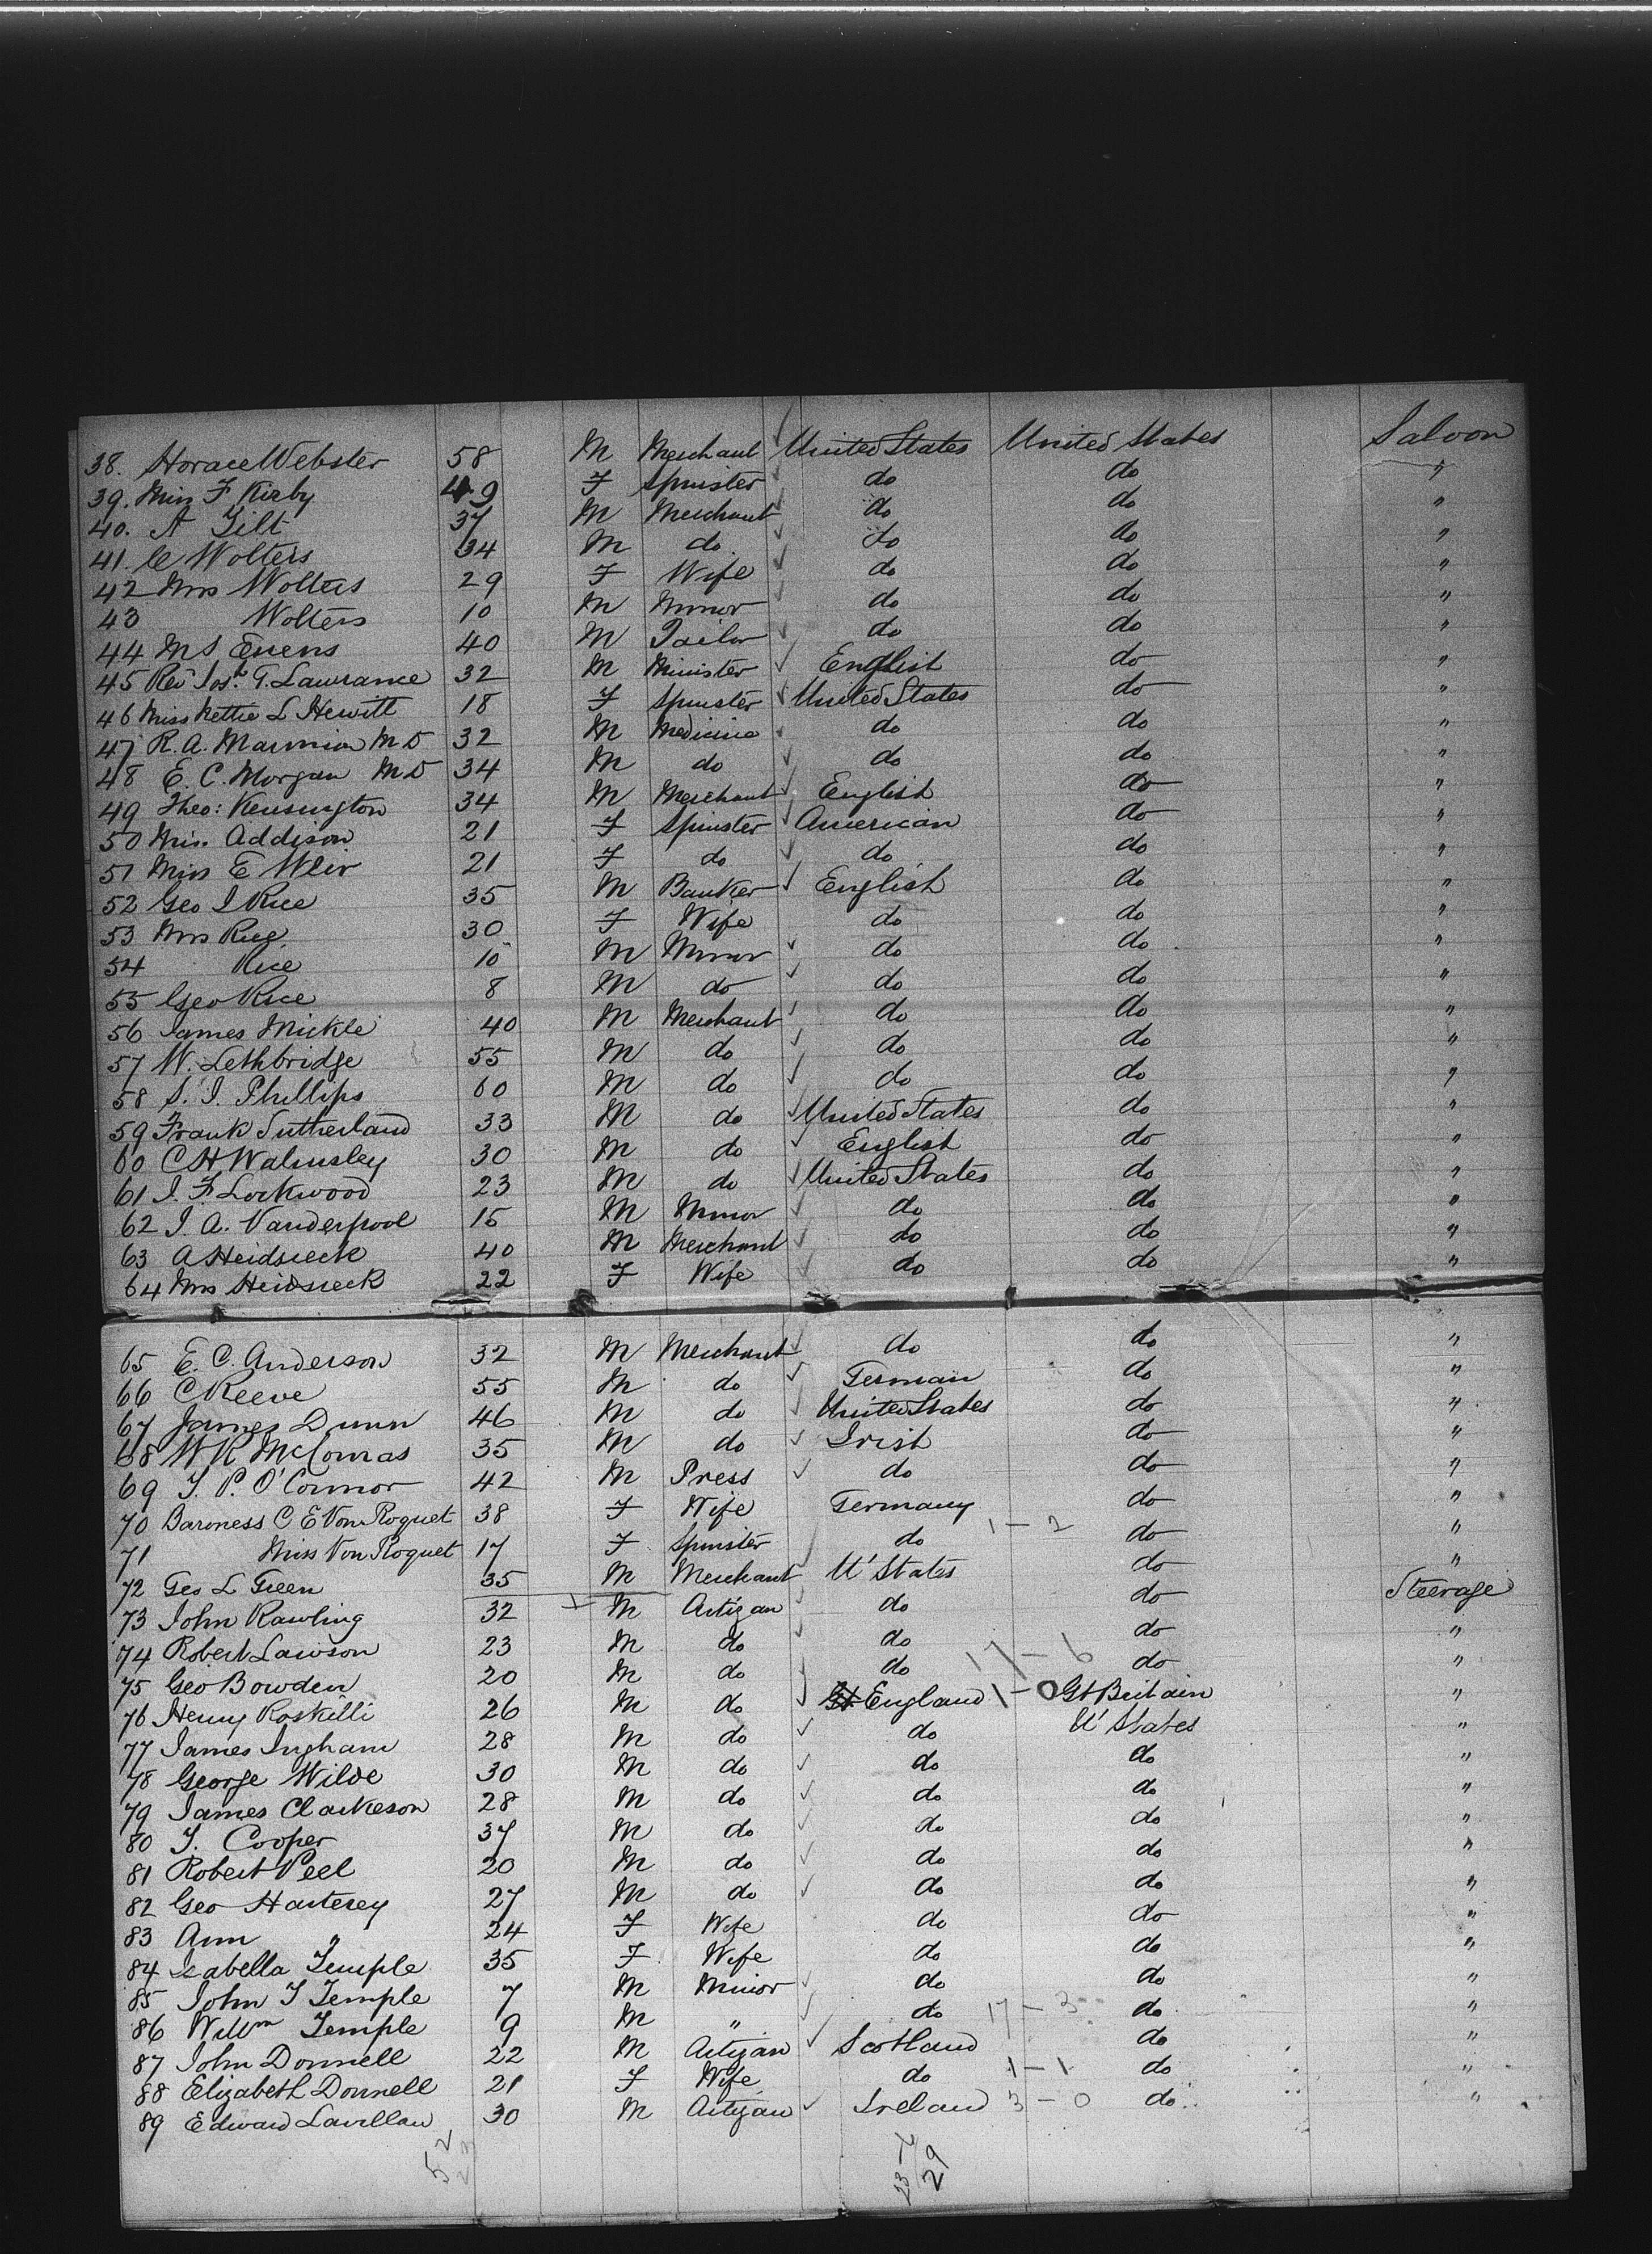 38. Horace Webster 58 M Merchant United States United States Saloon
39. Miss F Kirby 49 F Spinster do do "
40. A Tilt 37 M Merchant do do "
41. C Wolters 34 M do do do "
42 Mrs Wolters 29 F Wife do do "
43 Wolters 10 M Minor do do "
44 M S Evens 40 M Tailor do do "
45 Rev Josh. T. Lawrance 32 M Minister English do "
46 Miss Nettie L Hewitt 18 F Spinster United States do "
47 R. A. Marmion M D 32 M Medicine do do "
48 E. C. Morgan M D 34 M do do do "
49 Theo: Kensington 34 M Merchant English do "
50 Miss Addison 21 F Spinster American do "
51 Miss E Weir 21 F do do do "
52 Geo I Rice 35 M Banker English do "
53 Mrs Rice 30 F Wife do do "
54 Rice 10 M Minor do do "
55 Geo Rice 8 M do do do "
56 James Mickle 40 M Merchant do do "
57 W. Lethbridge 55 M do do do "
58 S. I. Phillips 60 M do do do "
59 Frank Sutherland 33 M do United States do "
60 C H Walmsley 30 M do English do "
61 I. F Lockwood 23 M do United States do "
62 I. A. Vanderpool 15 M Minor do do "
63 A Heidsieck 40 M Merchant do do "
64 Mrs Heidsieck 22 F Wife do do "
65 E. C. Anderson 32 M Merchant do do "
66 C Reeve 55 M do German do "
67 James Dunn 46 M do United States do "
68 W R McComas 35 M do Irish do "
69 T. P. O'Connor 42 M Press do do "
70 Baroness C E Von Roquet 38 F Wife Germany do "
71 Miss Von Roquet 17 F Spinster do 1-2 do "
72 Geo L Green 35 M Merchant U' States do "
73 John Rawling 32 M Artizan do do Steerage
74 Robert Lawson 23 M do do do "
75 Geo Bowden 20 M do do 17-6 do "
76 Henry Roskilli 26 M do Gt England 1-0 Gt Britain "
77 James Ingham 28 M do do U' States "
78 George Wilde 30 M do do do "
79 James Clarkeson 28 M do do do "
80 T. Cooper 37 M do do do "
81 Robert Peel 20 M do do do "
82 Geo Harterey 27 M do do do "
83 Ann " 24 F Wife do do "
84 Isabella Temple 35 F Wife do do "
85 John T Temple 7 M Minor do do "
86 Willm Temple 9 M " do 17-3 do "
87 John Donnell 22 M Artizan Scotland do "
88 Elizabeth Donnell 21 F Wife do 1-1 do "
89 Edward Lavillan 30 M Artizan Ireland 3-0 do "
52
23
29